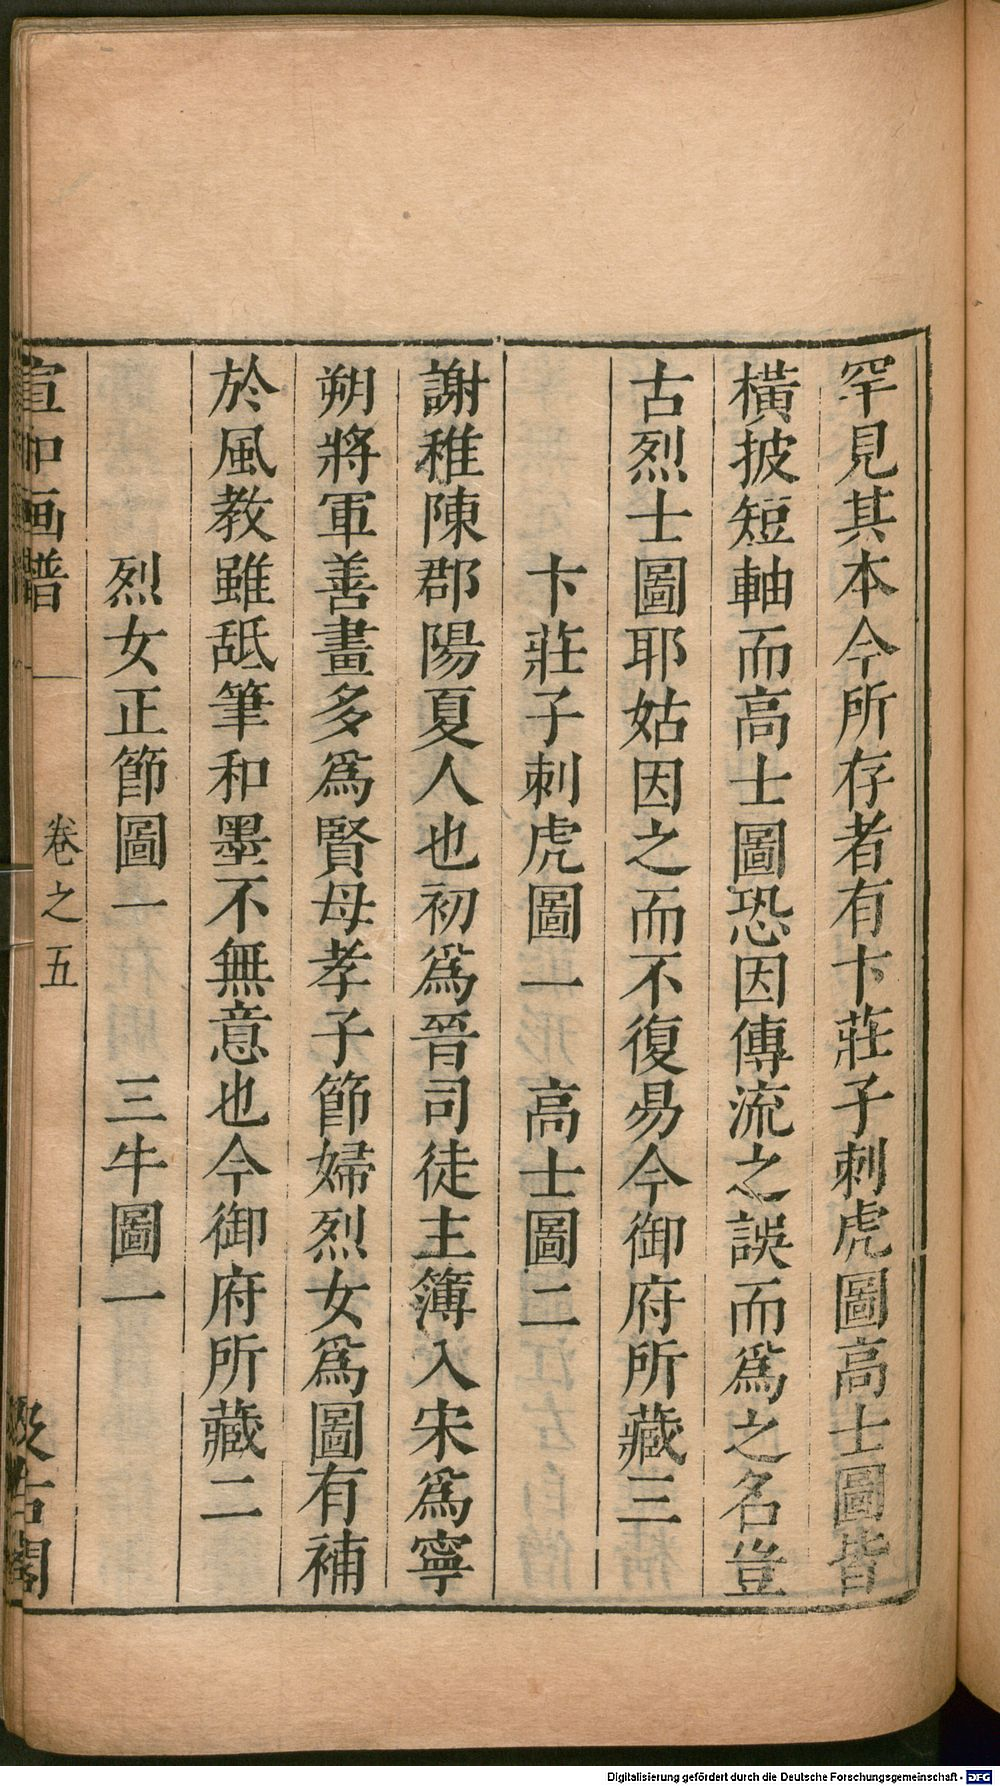 罕見其本今所存者有卞莊子刺虎圖高士圖皆
橫披短軸而高士圖恐因傳流之誤而爲之名豈
古烈士圖耶姑因之而不復易今御府所藏三
卞莊子刺虎圖一　高士圖二
謝稚陳郡陽夏人也初爲晉司徒主簿入宋爲寧
朔將軍善畫多爲賢母孝子節婦烈女爲圖有補
於風教雖舐筆和墨不無意也今御府所藏二
烈女正節圖一　三牛圖一
宣和画譜　卷之五　汲古閣
Digitalisierung gefördert durch die Deutsche Forschungsgemeinschaft - DFG